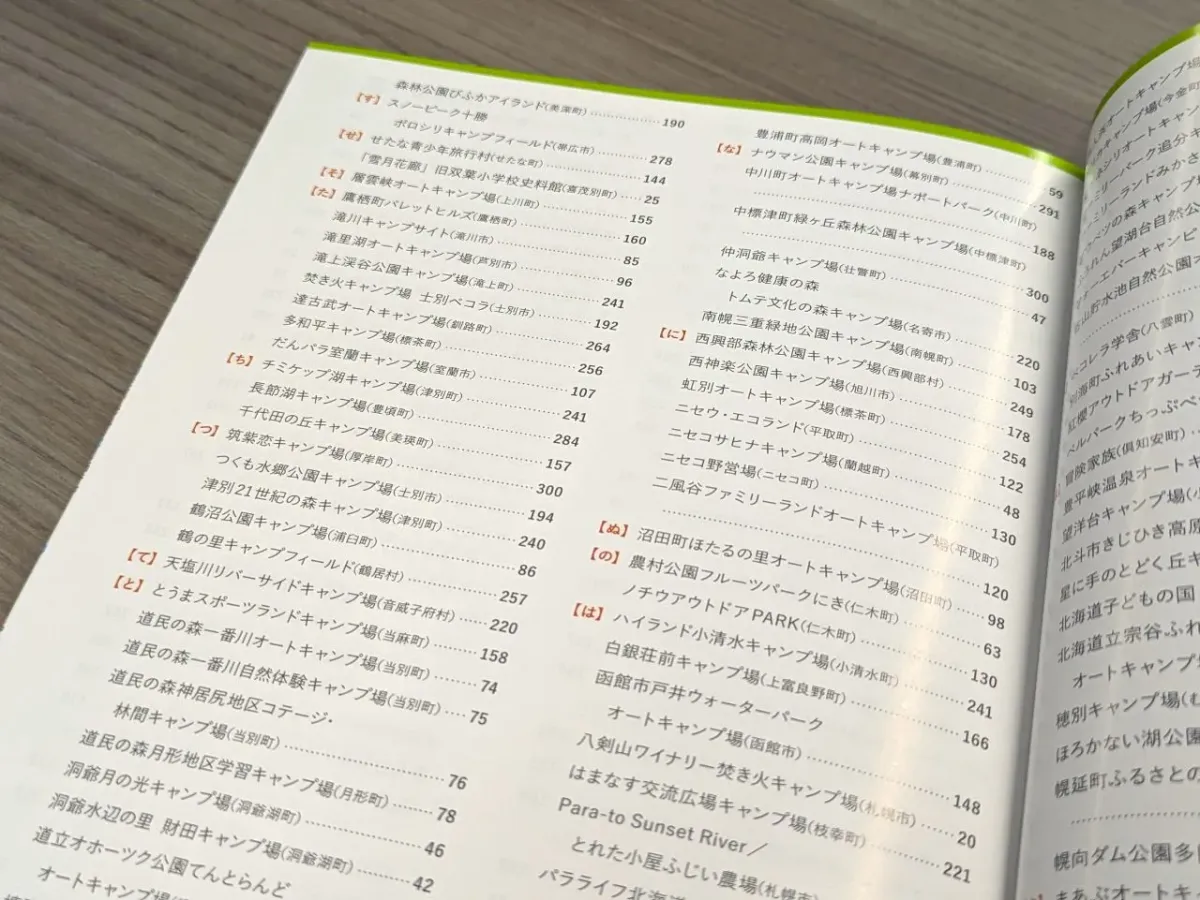 森林公園びふかアイランド(美深町) 190
【す】スノーピーク十勝
ポロシリキャンプフィールド(帯広市) 278
【せ】せたな青少年旅行村(せたな町) 144
「雪月花廊」旧双葉小学校史料館(喜茂別町) 25
【そ】層雲峡オートキャンプ場(上川町) 155
【た】鷹栖町パレットヒルズ(鷹栖町) 160
滝川キャンプサイト(滝川市) 85
滝里湖オートキャンプ場(芦別市) 96
滝上渓谷公園キャンプ場(滝上町) 241
焚き火キャンプ場 士別ペコラ(士別市) 192
達古武オートキャンプ場(釧路町) 264
多和平キャンプ場(標茶町) 256
だんパラ室蘭キャンプ場(室蘭市) 107
【ち】チミケップ湖キャンプ場(津別町) 241
長節湖キャンプ場(豊頃町) 284
千代田の丘キャンプ場(美瑛町) 157
【つ】筑紫恋キャンプ場(厚岸町) 300
つくも水郷公園キャンプ場(士別市) 194
津別21世紀の森キャンプ場(津別町) 240
鶴沼公園キャンプ場(浦臼町) 86
鶴の里キャンプフィールド(鶴居村) 257
【て】天塩川リバーサイドキャンプ場(音威子府村) 220
【と】とうまスポーツランドキャンプ場(当麻町) 158
道民の森一番川オートキャンプ場(当別町) 74
道民の森一番川自然体験キャンプ場(当別町) 75
道民の森神居尻地区コテージ・
林間キャンプ場(当別町) 76
道民の森月形地区学習キャンプ場(月形町) 78
洞爺月の光キャンプ場(洞爺湖町) 46
洞爺水辺の里 財田キャンプ場(洞爺湖町) 42
道立オホーツク公園てんとらんど
オートキャンプ場
豊浦町高岡オートキャンプ場(豊浦町) 59
【な】ナウマン公園キャンプ場(幕別町) 291
中川町オートキャンプ場ナポートパーク(中川町)
188
中標津町緑ヶ丘森林公園キャンプ場(中標津町)
300
仲洞爺キャンプ場(壮瞥町) 47
なよろ健康の森
トムテ文化の森キャンプ場(名寄市) 220
南幌三重緑地公園キャンプ場(南幌町) 103
【に】西興部森林公園キャンプ場(西興部村) 249
西神楽公園キャンプ場(旭川市) 178
虹別オートキャンプ場(標茶町) 254
ニセウ・エコランド(平取町) 122
ニセコサヒナキャンプ場(蘭越町) 48
ニセコ野営場(ニセコ町) 130
二風谷ファミリーランドオートキャンプ場(平取町)
120
【ぬ】沼田町ほたるの里オートキャンプ場(沼田町) 98
【の】農村公園フルーツパークにき(仁木町) 63
ノチウアウトドアPARK(仁木町) 130
【は】ハイランド小清水キャンプ場(小清水町) 241
白銀荘前キャンプ場(上富良野町) 166
函館市戸井ウォーターパーク
オートキャンプ場(函館市) 148
八剣山ワイナリー焚き火キャンプ場(札幌市) 20
はまなす交流広場キャンプ場(枝幸町) 221
Para-to Sunset River／
とれた小屋ふじい農場(札幌市)
パラライフ北海道
オートキャンプ場
キャンプ場(今金町
オートキャン
ミリーパーク追分オ
ミリーランドみかさ
の森キャンプ場
望湖台自然公
エバーキャンピ
山貯水池自然公園オ
ペコレラ学舎(八雲町)
別海町ふれあいキャン
紅櫻アウトドアガーデ
ベルパークちっぷべ
冒険家族(倶知安町)
豊平峡温泉オートキ
望洋台キャンプ場(小
北斗市きじひき高原
星に手のとどく丘キ
北海道子どもの国
北海道立宗谷ふれ
オートキャンプ場
穂別キャンプ場(む
ほろかない湖公園
幌延町ふるさとの
幌向ダム公園多目
まあぶオートキャ